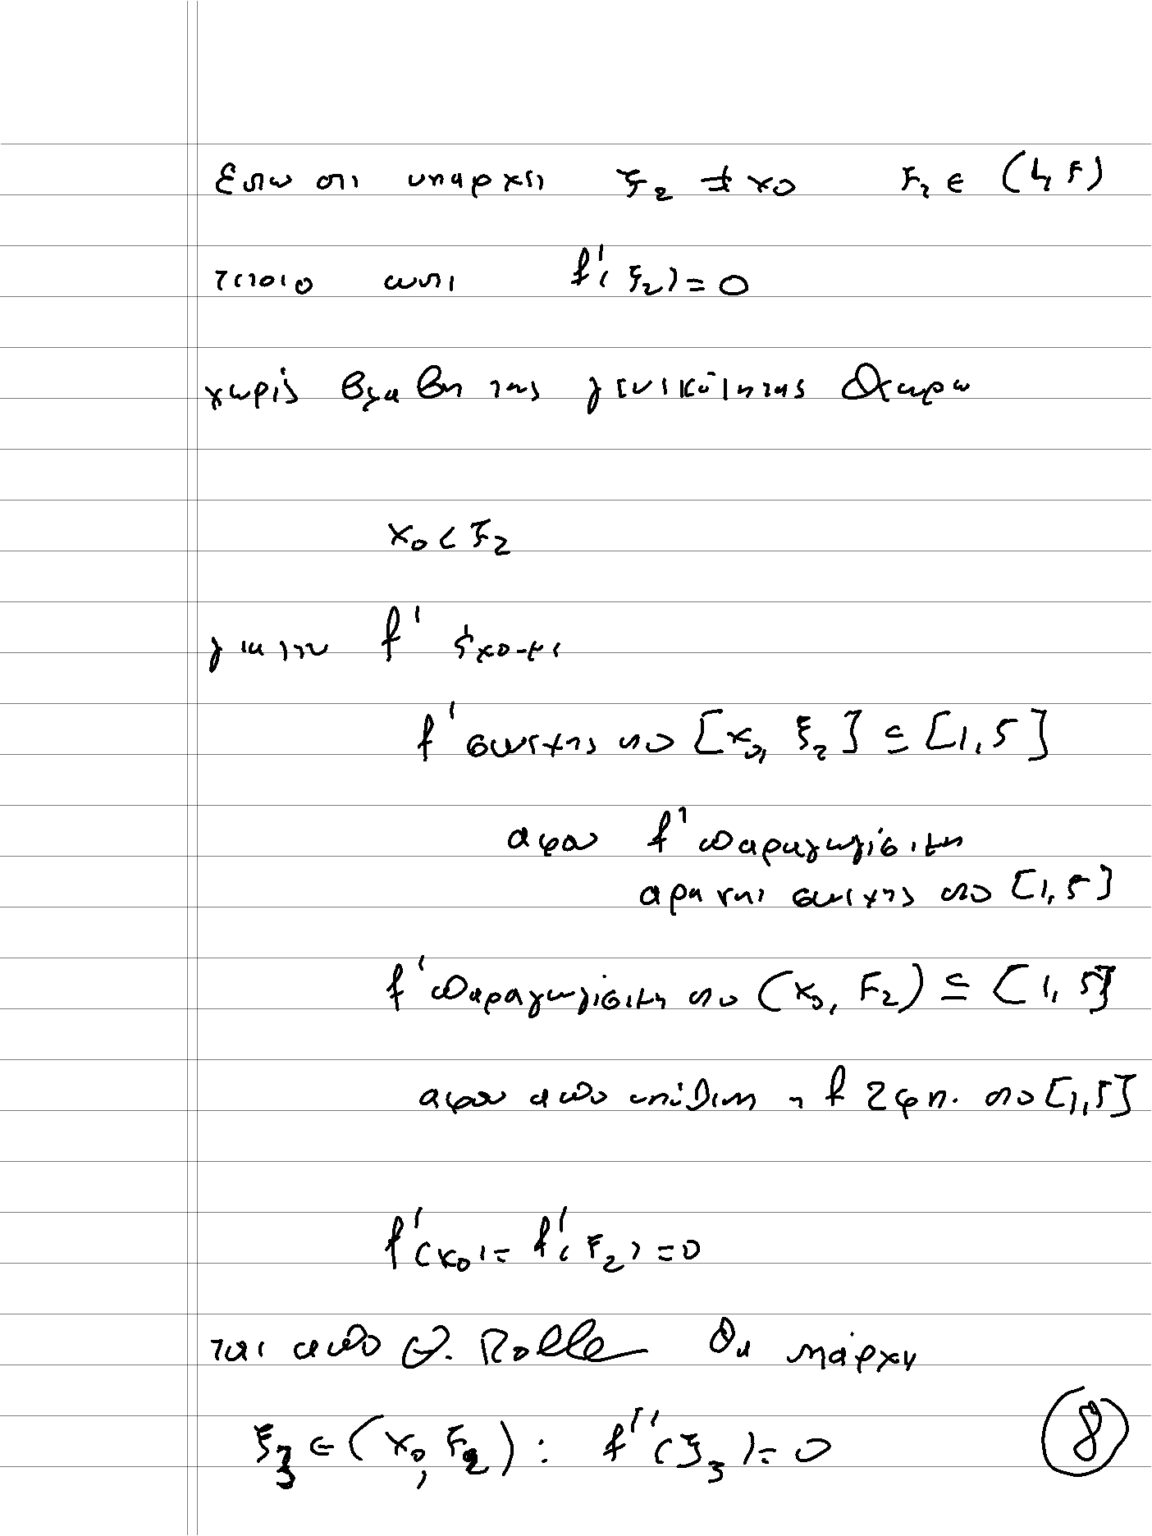 Εστω οτι υπαρχει ξ₂ ≠ x₀ ξ₂ ∈ (1, 5)
τετοιο ωστε f'(ξ₂) = 0
χωρίς βλαβη της γενικότητας θεωρω
x₀ < ξ₂
για την f' έχουμε
f' συνεχης στο [x₀, ξ₂] ⊆ [1, 5]
αφου f' παραγωγίσιμη
αρα και συνεχης στο [1, 5]
f' παραγωγισιμη στο (x₀, ξ₂) ⊆ [1, 5]
αφου απο υπόθεση η f 2 φπ. στο [1, 5]
f'(x₀) = f'(ξ₂) = 0
και απο Θ. Rolle θα υπάρχει
ξ₃ ∈ (x₀, ξ₂) : f''(ξ₃) = 0
8